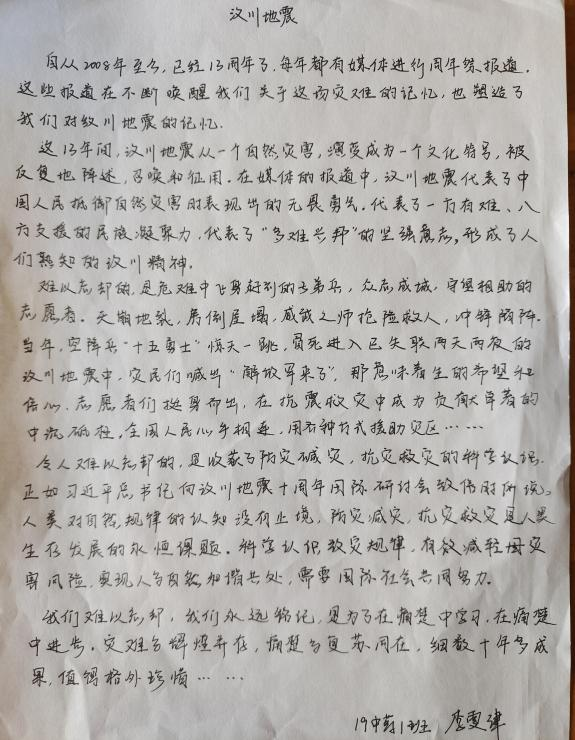 汶川地震
自从2008年至今，已经13周年了，每年都有媒体进行周年祭报道。
这些报道在不断唤醒我们关于这场灾难的记忆，也塑造了
我们对汶川地震的记忆.
这13年间，汶川地震从一个自然灾害，演变成为一个文化符号，被
反复地阵述，召唤和征用。在媒体的报道中，汶川地震代表了中
国人民抵御自然灾害时表现出的无畏勇气.代表了一方有难、八
方支援的民族凝聚力，代表了"多难兴邦"的坚强意志。形成了人
们熟知的汶川精神.
难以忘却的，是危难中飞身赶到的子弟兵，众志成城，守望相助的
志愿者。天崩地裂，房倒屋塌，威武之师抢险救人，冲锋陷阵.
当年，空降兵"十五勇士"惊天一跳，冒死进入已失联两天两夜的
汶川地震中，灾民们喊出"解放军来了"，那意味着生的希望和
信心.志愿者们挺身而出，在抗震救灾中成为负有大卓著的
中流砥柱，全国人民心手相连，用各种方式援助灾区……
令人难以忘却的，是收获了防灾减灾，抗灾救灾的科学认识.
正如习近平总书记向汶川地震十周年国际研讨会致信时所说，
人类对自然规律的认知没有止境，防灾减灾，抗灾救灾是人类
生存发展的永恒课题。科学认识致灾规律，有效减轻灾
害风险，实现人与自然和谐共处，需要国际社会共同努力.
我们难以忘却，我们永远铭记，是为了在痛楚中学习，在痛楚
中进步。灾难与辉煌并存，痛楚与复苏同在，细数十年多成
果，值得格外珍惜……
19中药1班